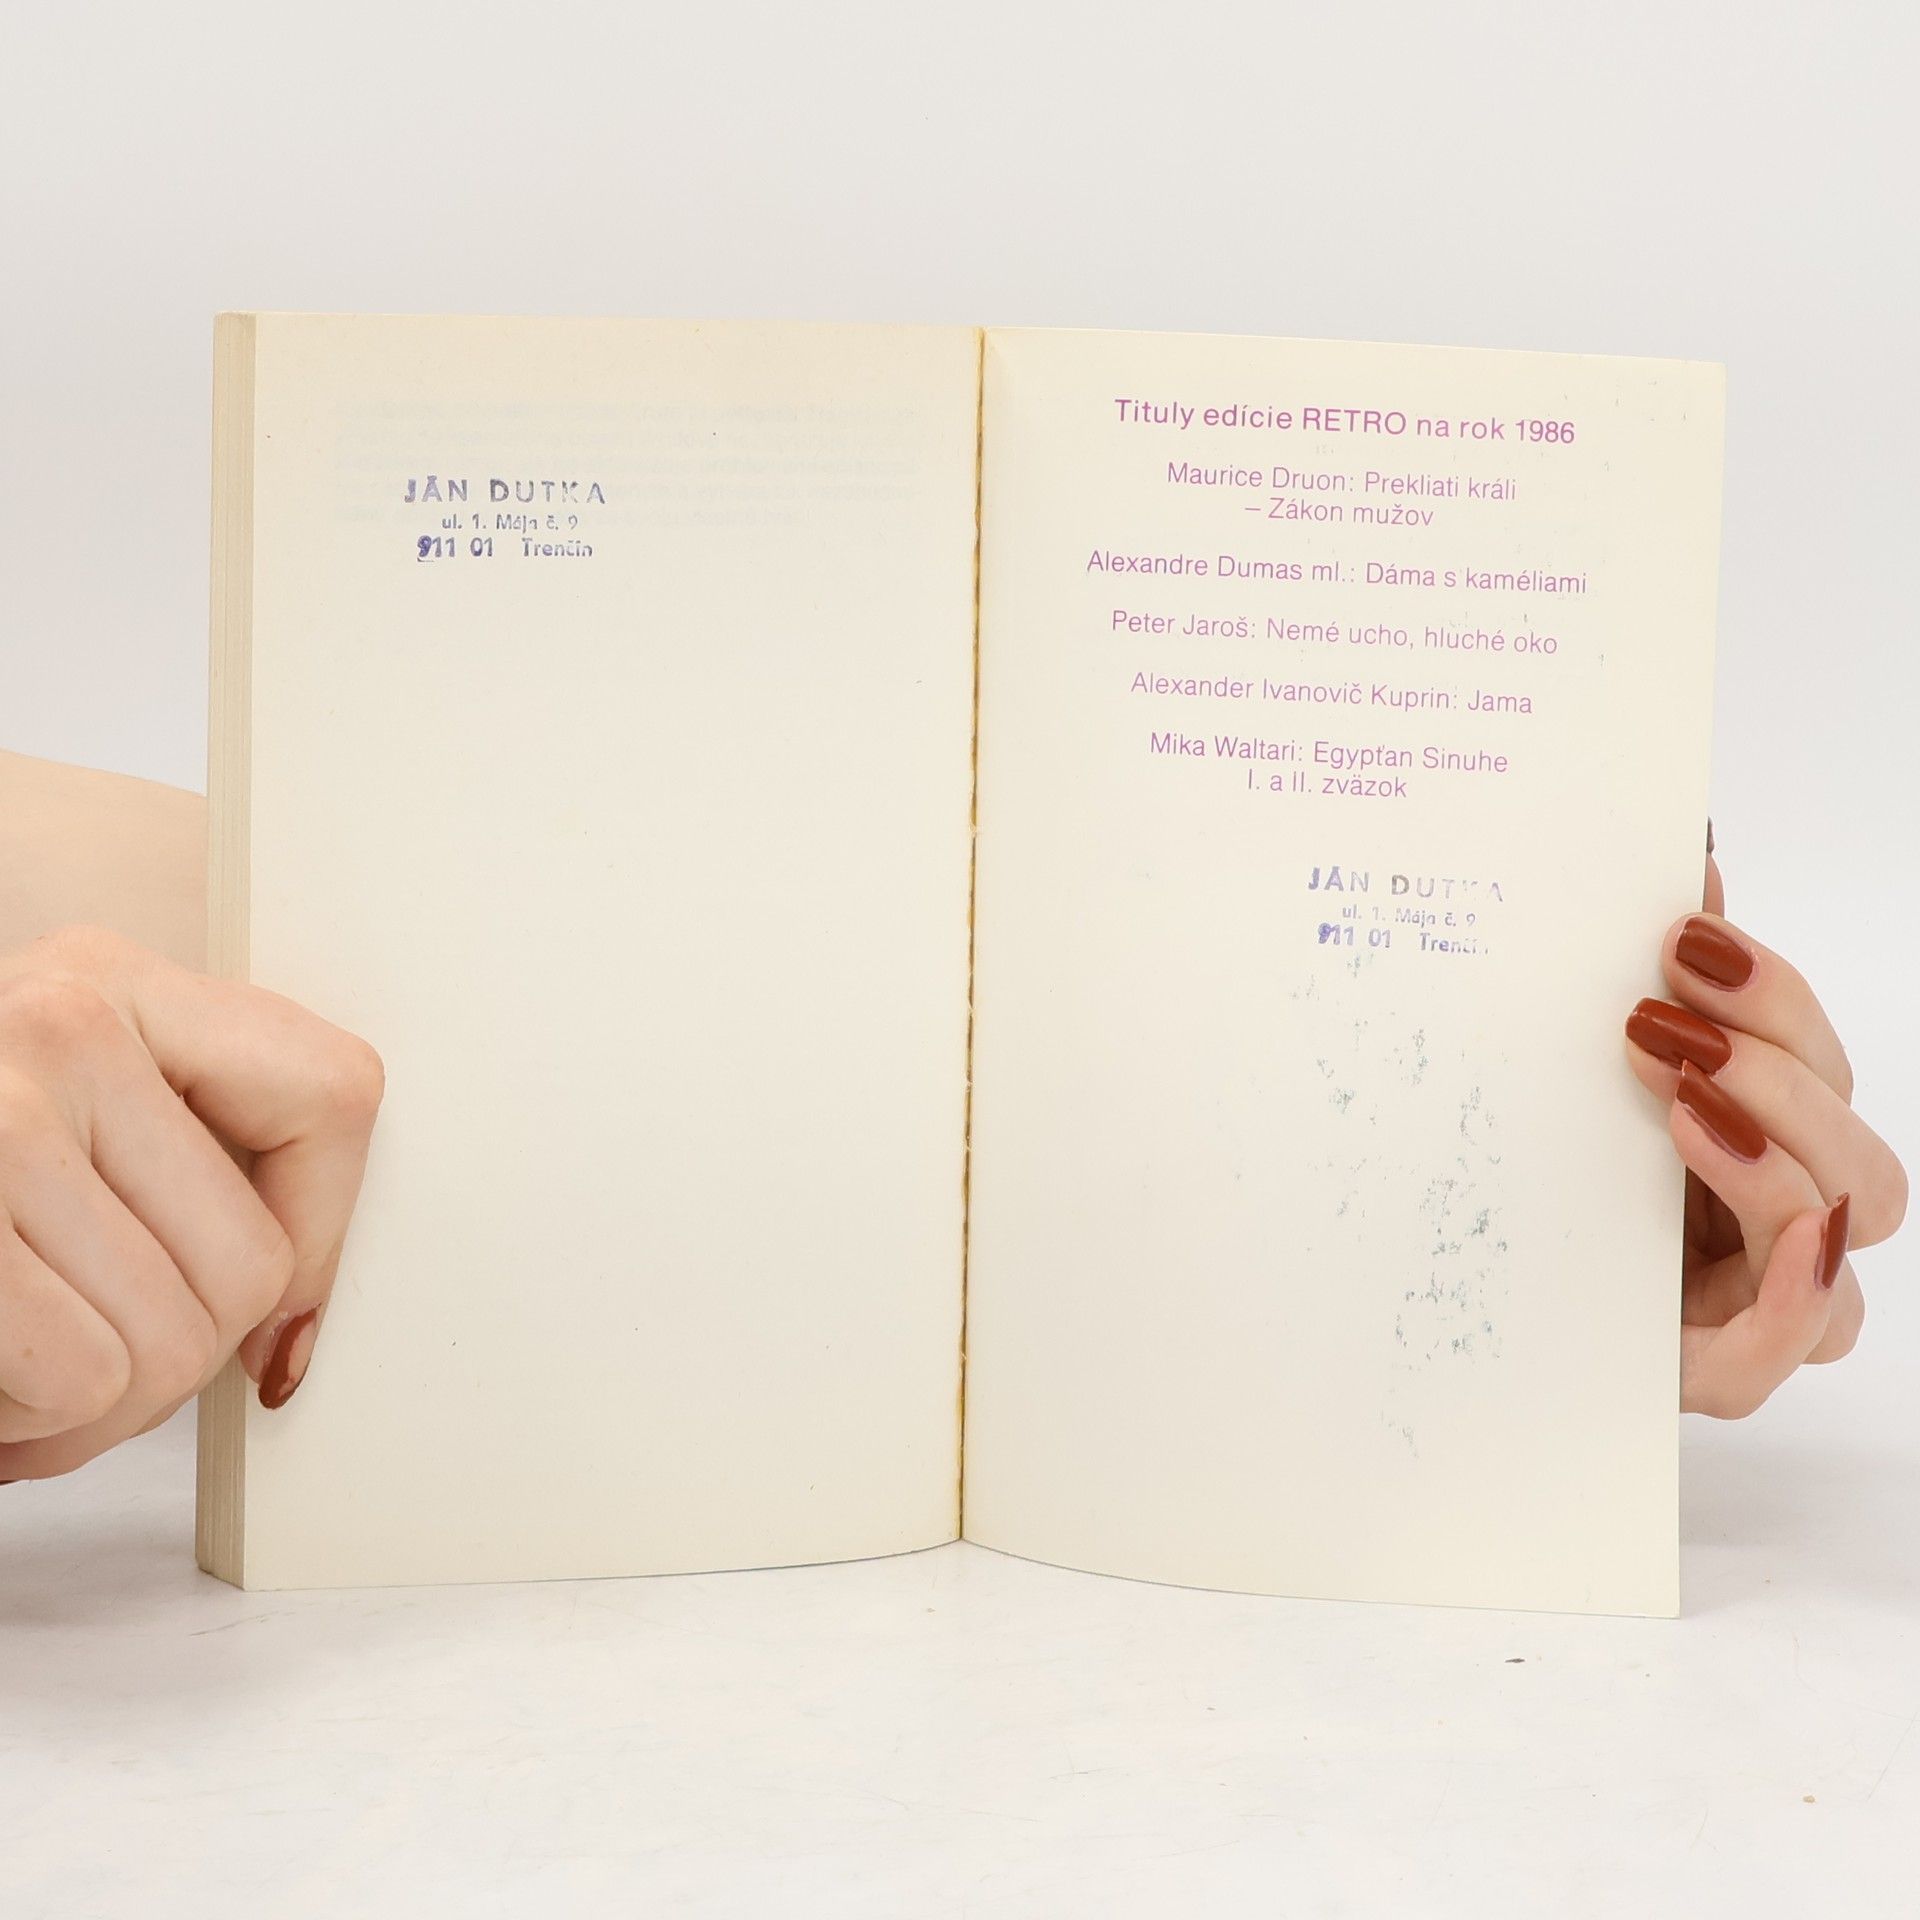 JÁN DUTKA
ul. 1. Mája č. 9
911 01 Trenčín
Tituly edície RETRO na rok 1986
Maurice Druon: Prekliati králi
– Zákon mužov
Alexandre Dumas ml.: Dáma s kaméliami
Peter Jaroš: Nemé ucho, hluché oko
Alexander Ivanovič Kuprin: Jama
Mika Waltari: Egypťan Sinuhe
I. a II. zväzok
JÁN DUTKA
ul. 1. Mája č. 9
911 01 Trenčín